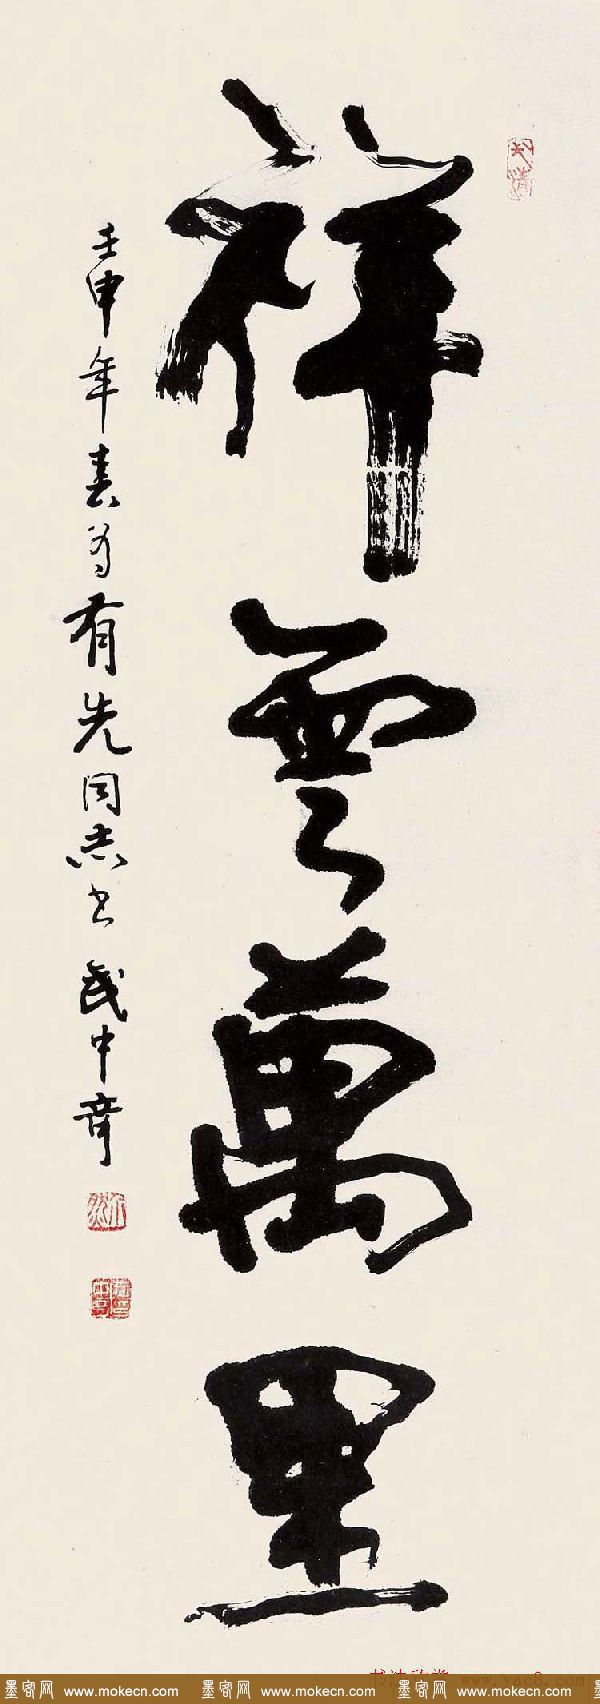 祥雲萬里
壬申年春為有先同志書 武中奇
墨客网 www.mokecn.com 墨客网 www.mokecn.com 墨客网 www.mokecn.com
www.yac8.com